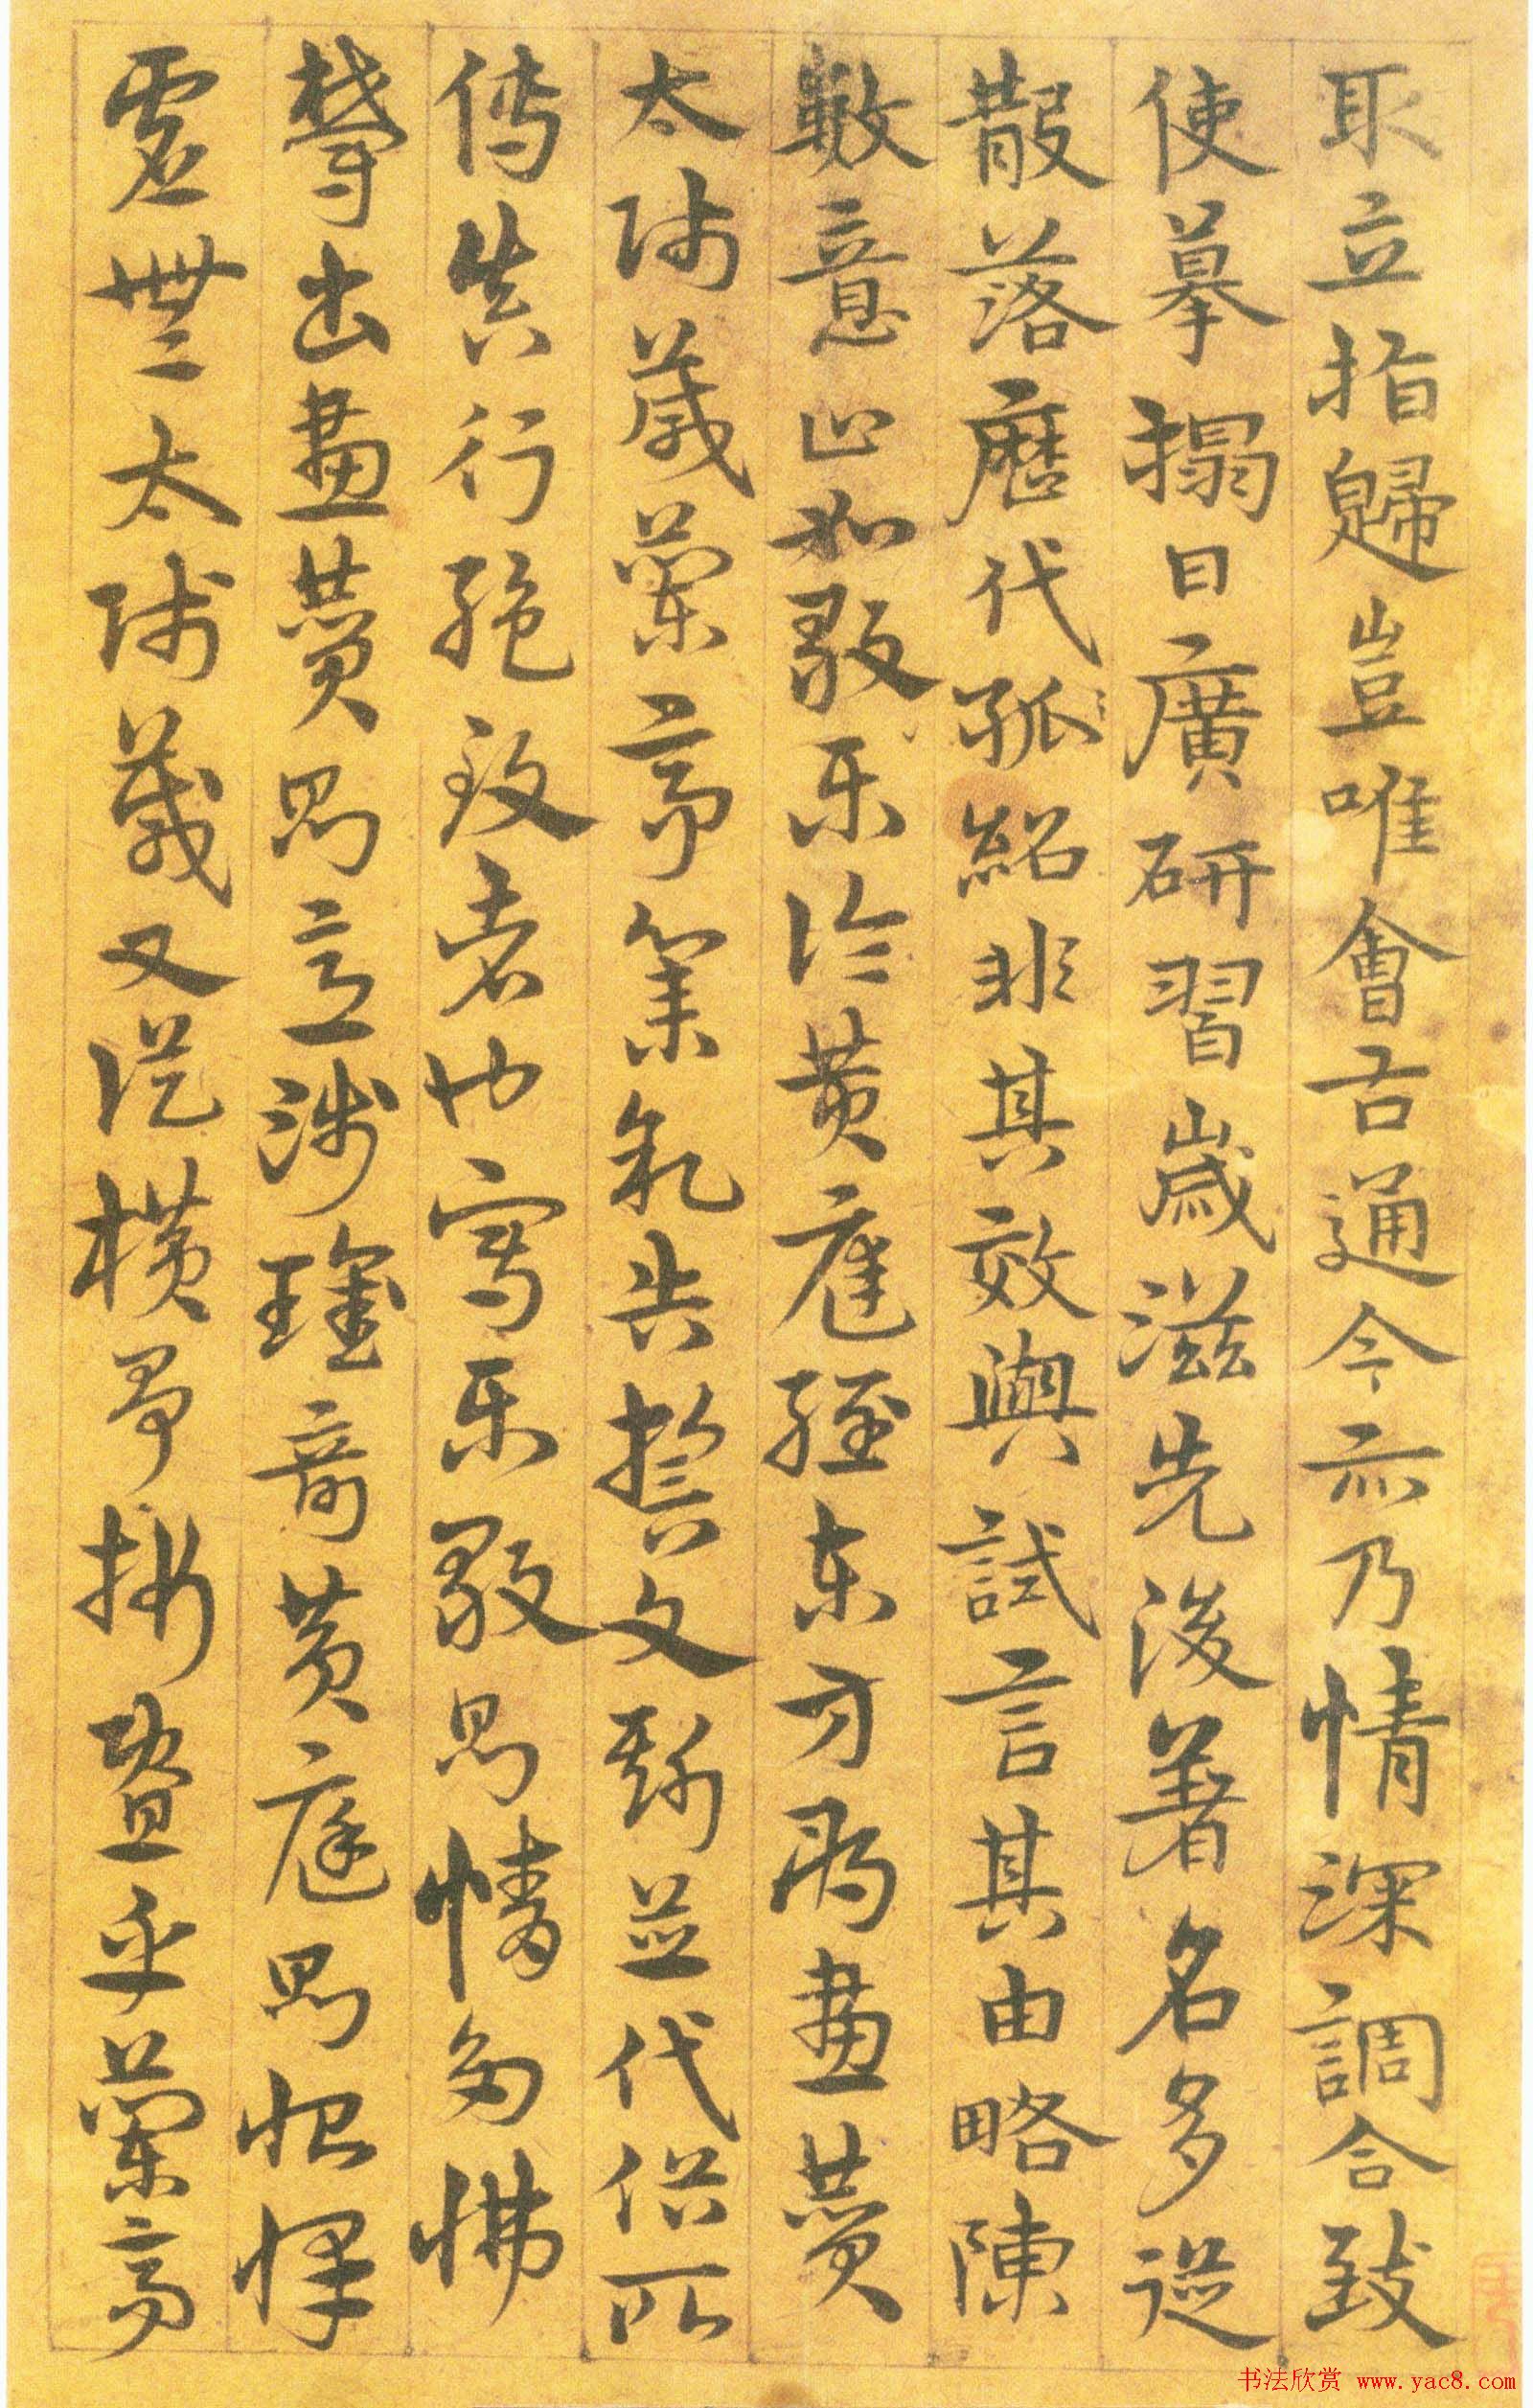 取立指歸豈唯會古通今亦乃情深調合致
使摹搨日廣研習歲滋先後著名多從
散落歷代孤紹非其效與試言其由略陳
數意止如毅樂論黃庭經東方朔畫贊
太師箴蘭亭集叙告誓文斯並代俗所
傳真行絕致者也寫樂毅則情多怫
鬱書畫贊則意涉瓌奇黃庭則怡懌
虛無太師箴又從橫爭折暨乎蘭亭
书法欣赏 www.yac8.com